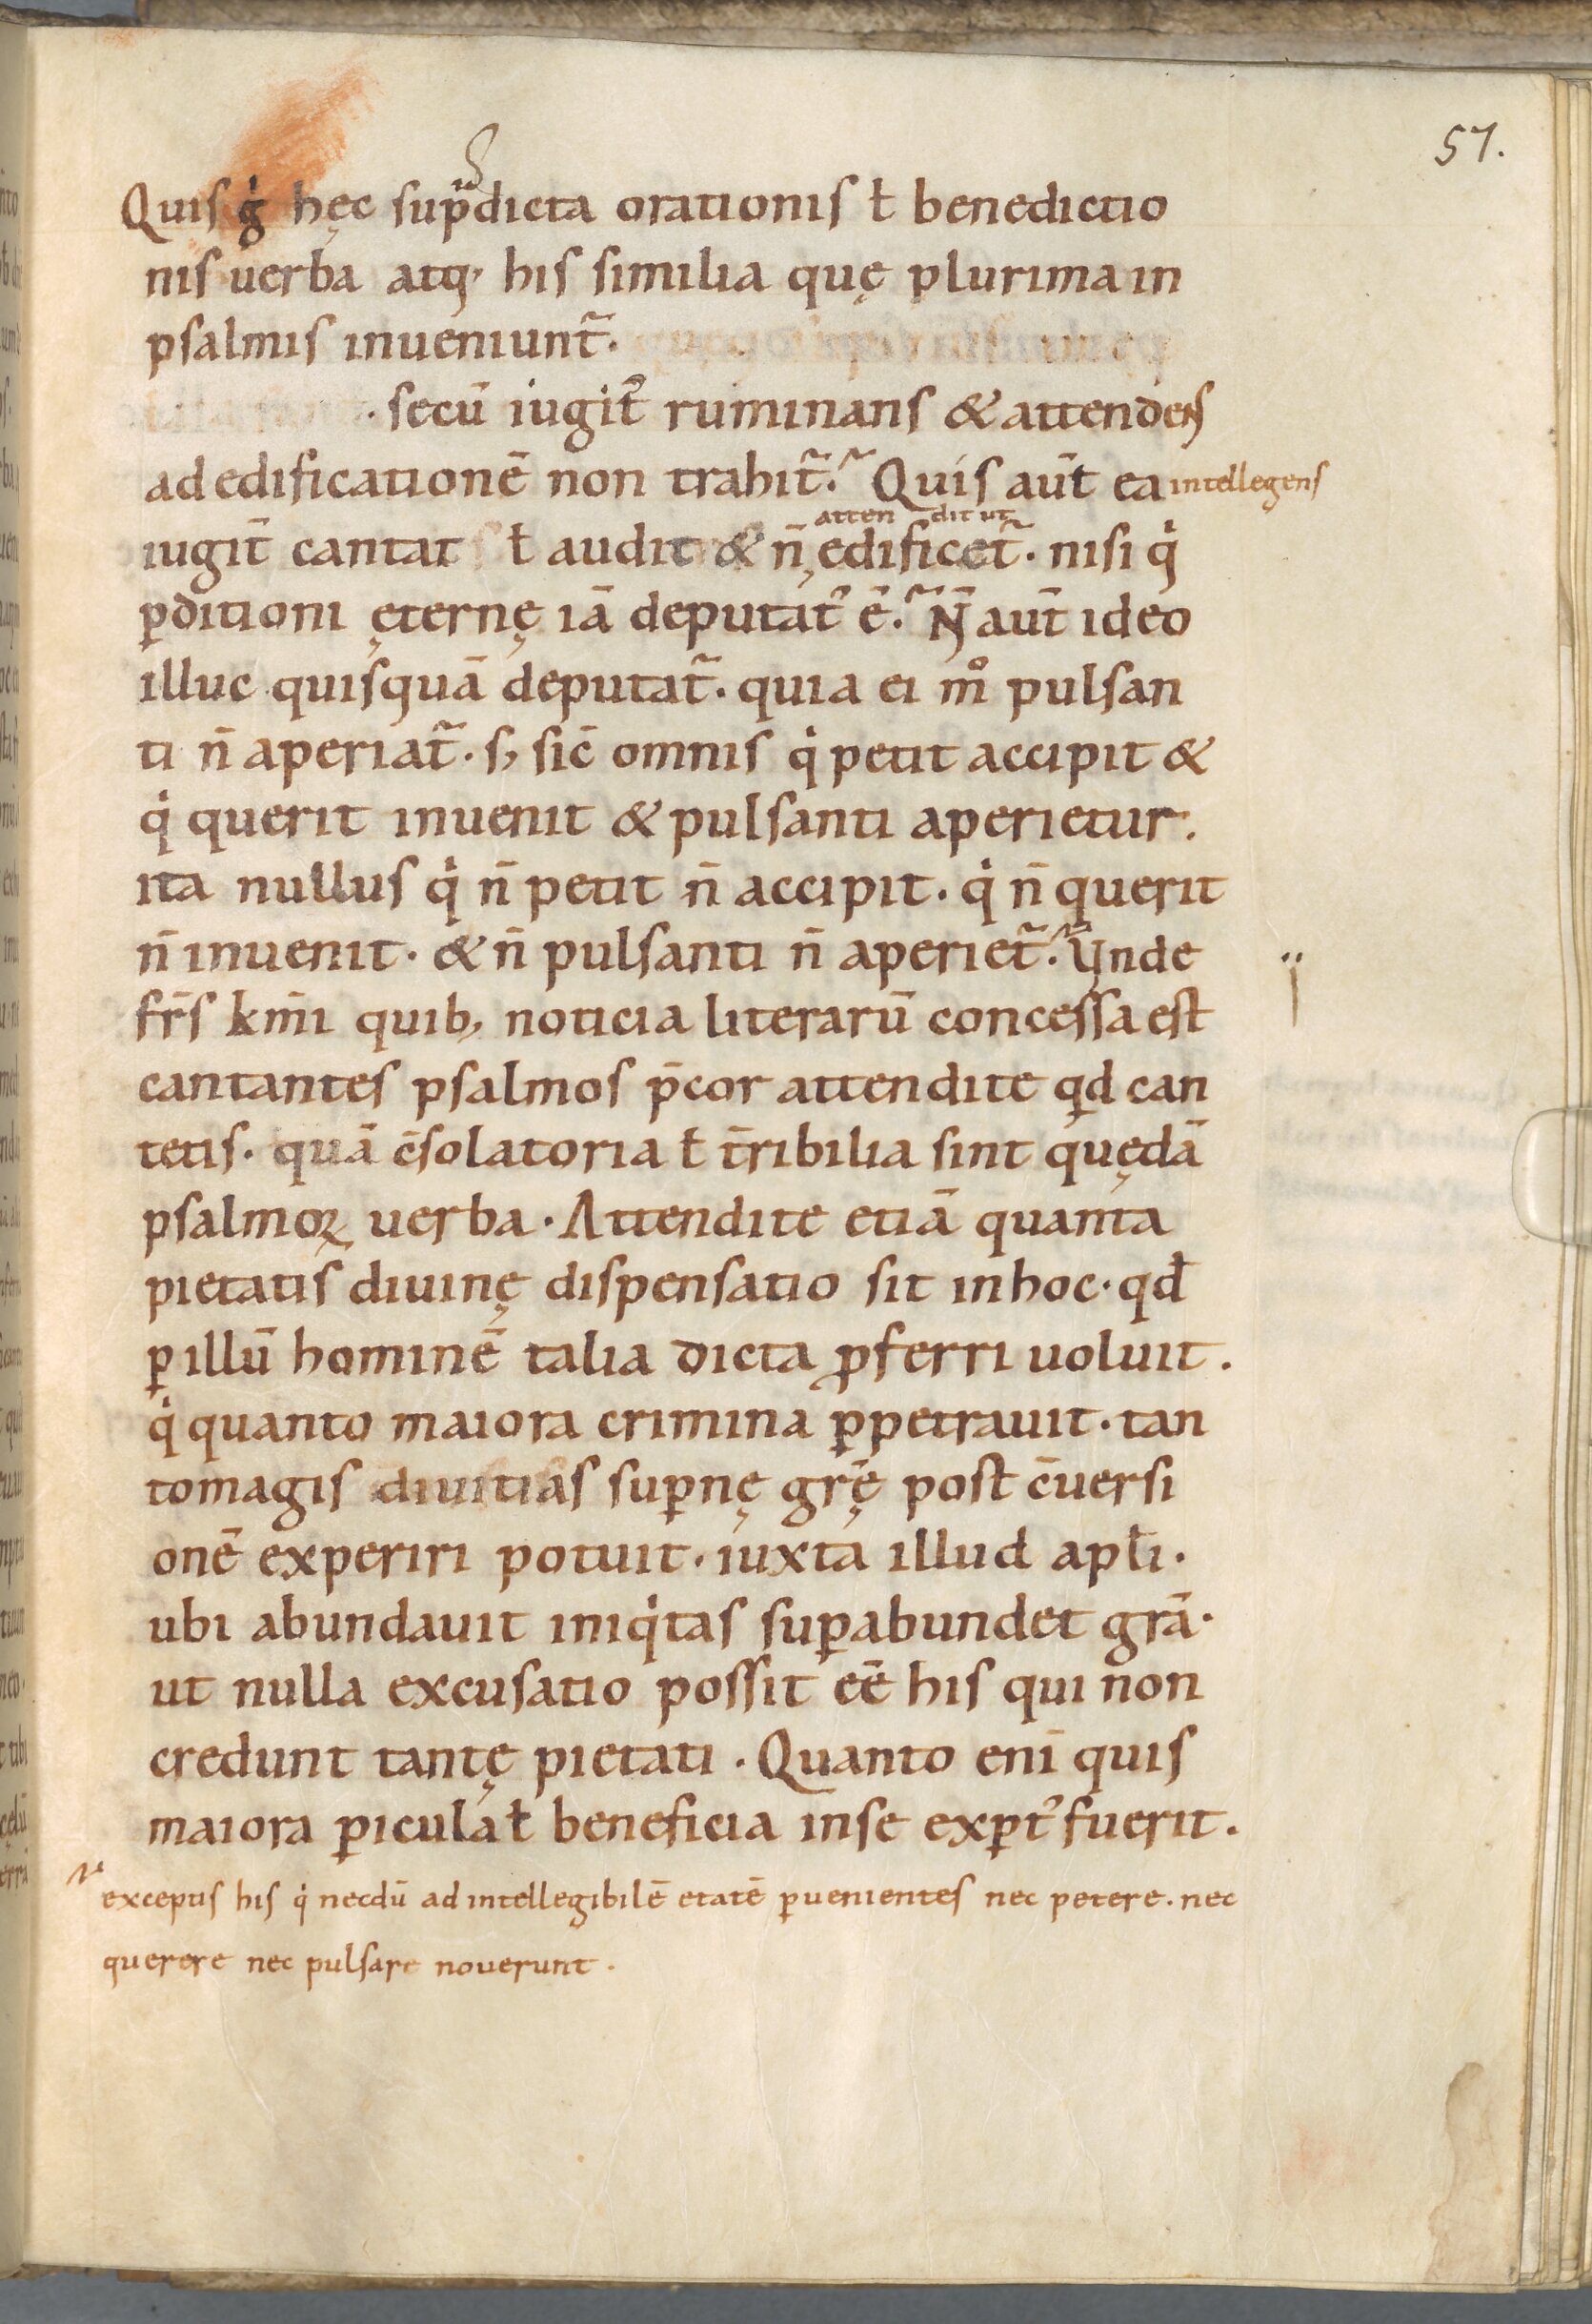 57.
Quis g̍ hęc sup̄dicta orationis ł benedictio
nis uerba atq, his similia quę plurima in
psalmis inueniunt̄.
. secū iugit̄ ruminans & attendens
ad edificationē non trahit̄. Quis aut̄ ea intellegens
atten dit ut
iugit̄ cantat ł audit & n̄ edificet̄. nisi q̍
ꝑditioni ęternę iā deputat᾽ ē. N̄ aut̄ ideo
illuc quisquā deputat̄. quia ei m̊ pulsan
ti n̄ aperiat̄. s; sic̄ omnis q̍ petit accipit &
q̍ querit inuenit & pulsanti aperietur.
ita nullus q̍ n̄ petit n̄ accipit. q̍ n̄ querit
n̄ inuenit. & n̄ pulsanti n̄ aperiet̄. Vnde
fr̄s km̄i quib, noticia literarū concessa est
cantantes psalmos p̄cor attendite qd can
tetis. quā c̄solatoria ł t̄ribilia sint quędā
psalmoꝝ uerba. Attendite etiā quanta
pietatis diuinę dispensatio sit in hoc. qđ
ꝑ illū hominē talia dicta ꝓferri uoluit.
q̍ quanto maiora crimina ꝑpetrauit. tan
tomagis diuitias suꝑnę gr̄ę post c̄uersi
onē experiri potuit. iuxta illud apłi.
ubi abundauit iniq̍tas suꝑabundet grā.
ut nulla excusatio possit eē his qui non
credunt tantę pietati. Quanto eni̅ quis
maiora ꝑicula ł beneficia in se exꝑt᾽ fuerit.
exceptis his q̍ necdū ad intellegibilē etatē ꝑuenientes nec petere. nec
querere nec pulsare nouerunt.